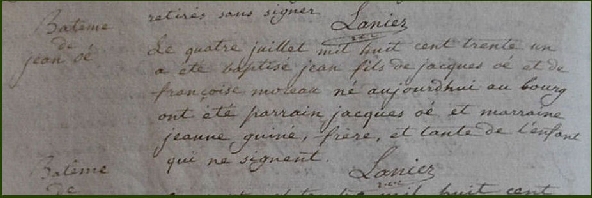 retirés sans signer
Lanier
Batême
de
jean oé
Le quatre juillet mil huit cent trente un
a été baptisé jean fils de jacques oé et de
françoise moreau né aujourd'hui au bourg
ont été parrain jacques oé et marraine
jeanne guine, frère, et tante de l'enfant
qui ne signent.
Lanier
Batême
de
mil huit cent